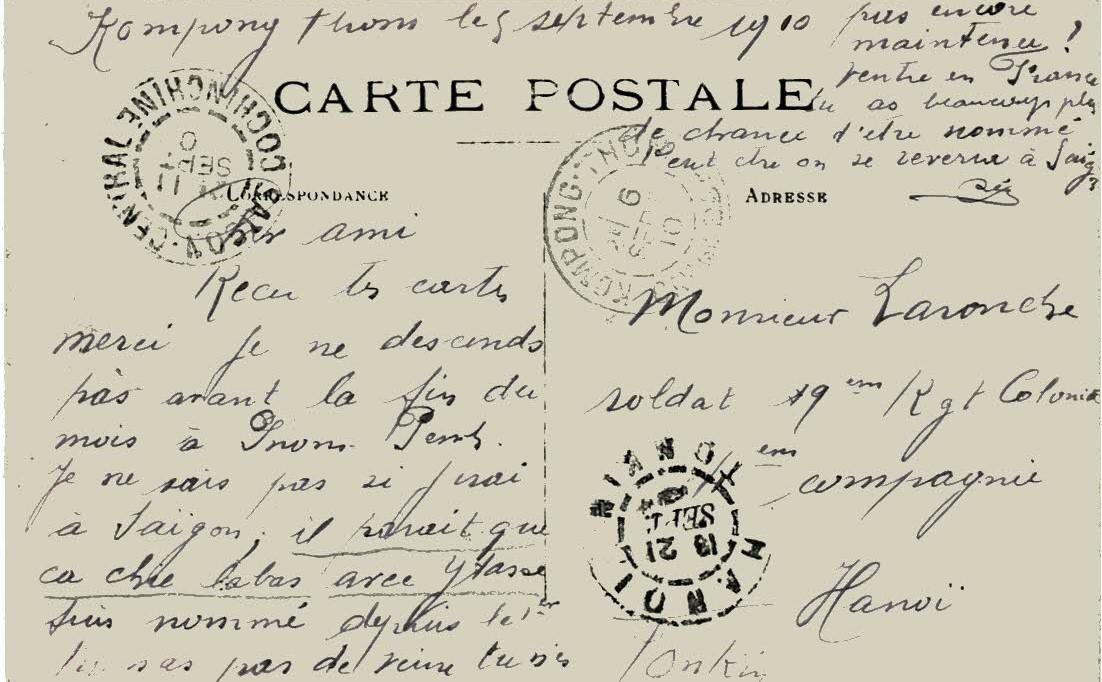 Kompong Thom le 5 septembre 1910
CARTE POSTALE
CORRESPONDANCE
Cher ami
Recu tes cartes
merci Je ne descends
pas avant la fin du
mois à Pnom Penh.
Je ne sais pas si j'irai
à Saïgon, il parait que
ca chie labas avec
suis nommé depuis le 1er
pas de veine tu
pas encore
maintenu !
rentre en France
tu as beaucoup plus
de chance d'etre nommé
Peut etre on se reverra à Saig
ADRESSE
Monsieur Laronche
soldat 9em Rgt Colonia
em compagnie
Hanoï
Tonkin
SAIGON-CENTRAL COCHINCHINE
11
SEPT
KOMPONG-THOM
6
10
HANOI TONKIN
13 21
SEPT.